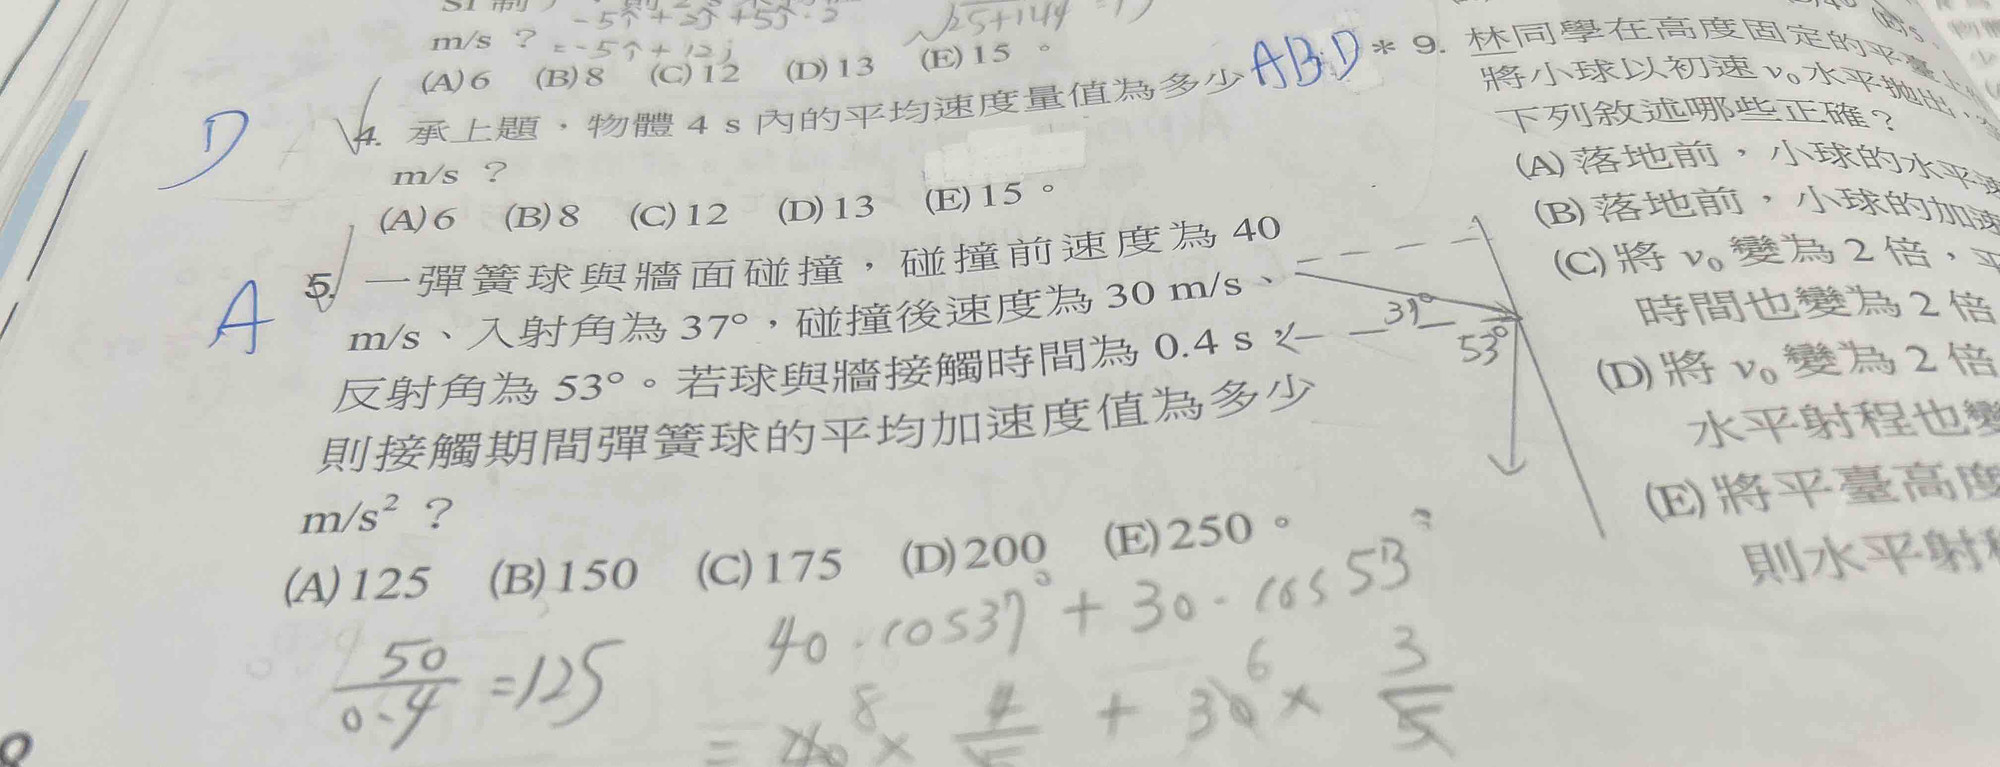 -5î+2ĵ+5ĵ·2
√25+144
m/s ? =-5î+12ĵ
(A)6 (B)8 (C)12 (D)13 (E)15。
D
4. 承上題，物體 4 s 內的平均速度量值為多少
m/s ?
(A)6 (B)8 (C)12 (D)13 (E)15。
A
5. 一彈簧球與牆面碰撞，碰撞前速度為 40
m/s、入射角為 37°，碰撞後速度為 30 m/s、
反射角為 53°。若球與牆接觸時間為 0.4 s，
則接觸期間彈簧球的平均加速度值為多少
m/s² ?
(A)125 (B)150 (C)175 (D)200 (E)250。
37°
53°
40·cos37°+30·cos53°
50/0.4=125
=40 8×4/5+30 6×3/5
ABD
*9. 林同學在高度固定的平臺上
將小球以初速 v₀ 水平拋出，
下列敘述哪些正確？
(A)落地前，小球的水平速
(B)落地前，小球的加速
(C)將 v₀ 變為 2 倍，
時間也變為 2 倍
(D)將 v₀ 變為 2 倍
水平射程也變
(E)將平臺高度
則水平射